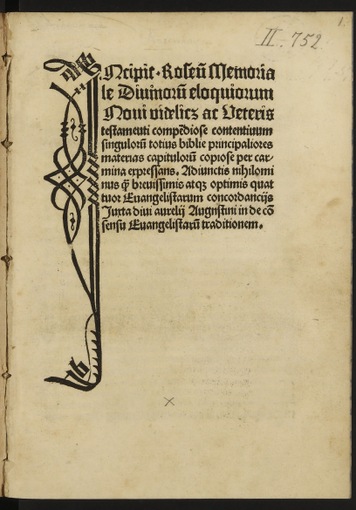 II. 752
1.
Incipit · Roseū Memoria
le Diuinorū eloquiorum
Noui videlicz ac Veteris
testamenti compēdiose contentiuum
singulorū totius biblie principaliores
materias capitulorū copiose per car
mina expressans. Adiunctis nihilomi
nus q̄ breuissimis atqz optimis quat
tuor Euangelistarum concordancijs
Juxta diui aurelij Augustini in de cō
sensu Euangelistarū traditionem.